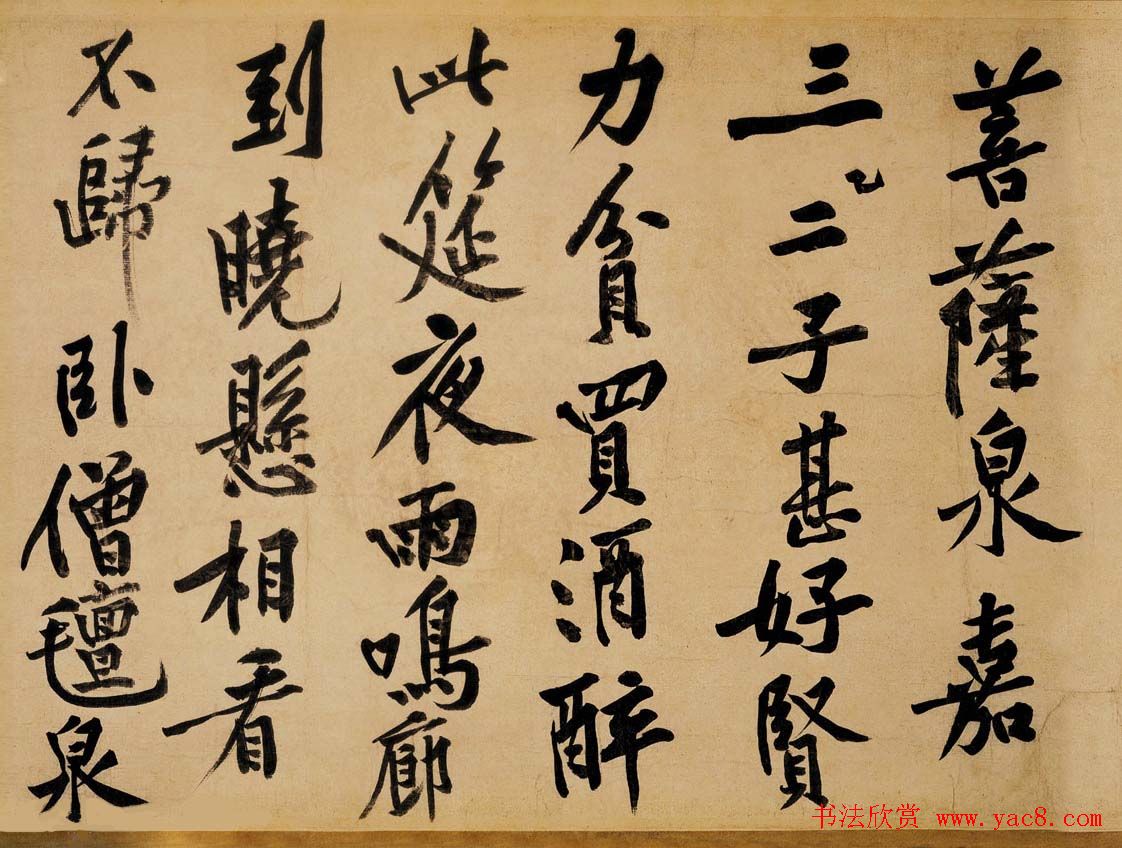 菩薩泉嘉
三二子甚好賢
力貧買酒醉
此筵夜雨鳴廊
到曉懸相看
不歸臥僧氈泉
书法欣赏 www.yac8.com